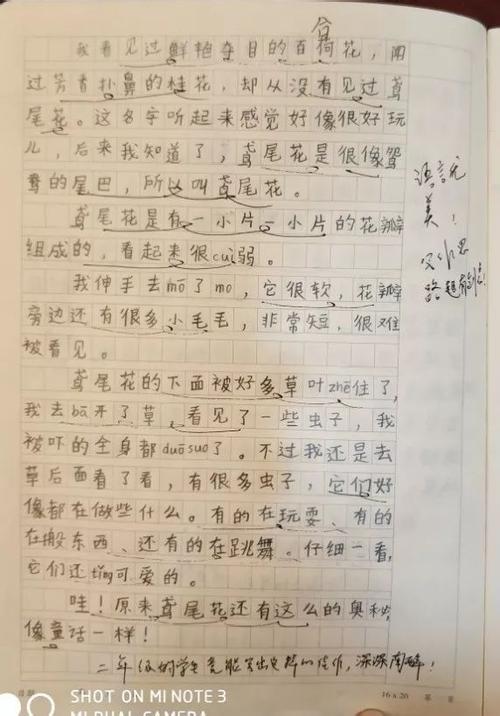 我看见过鲜艳夺目的百荷花,闻
合
过芳香扑鼻的桂花,却从没有见过鸢
尾花。这名字听起来感觉好像很好玩
儿,后来我知道了,鸢尾花是很像鸳
鸯的尾巴,所以叫鸢尾花。
鸢尾花是有一小片一小片的花瓣
组成的,看起来很cuì弱。
我伸手去mō了mo,它很软,花瓣
旁边还有很多小毛毛,非常短,很难
被看见。
鸢尾花的下面被好多草叶zhē住了,
我去bā开了草,看见了一些虫子,我
被吓的全身都duōsuo了。不过我还是去
草后面看了看,有很多虫子,它们好
像都在做些什么。有的在玩耍、有的
在搬东西、还有的在跳舞。仔细一看,
它们还tǐng可爱的。
哇!原来鸢尾花还有这么的奥秘,
像童话一样!
二年级的学生竟能写出这样的佳作,深深陶醉!
语言优
美!
16×20
SHOT ON MI NOTE 3
MI DUAL CAMERA